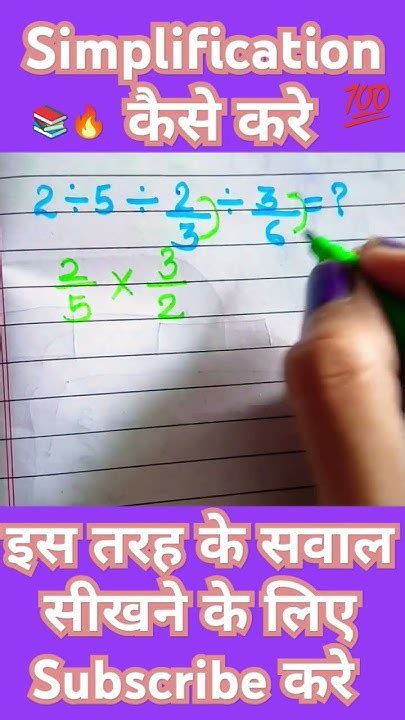 Simplification
📚🔥 कैसे करे 💯
2÷5÷2/3÷3/6=?
2/5×3/2
इस तरह के सवाल
सीखने के लिए
Subscribe करे